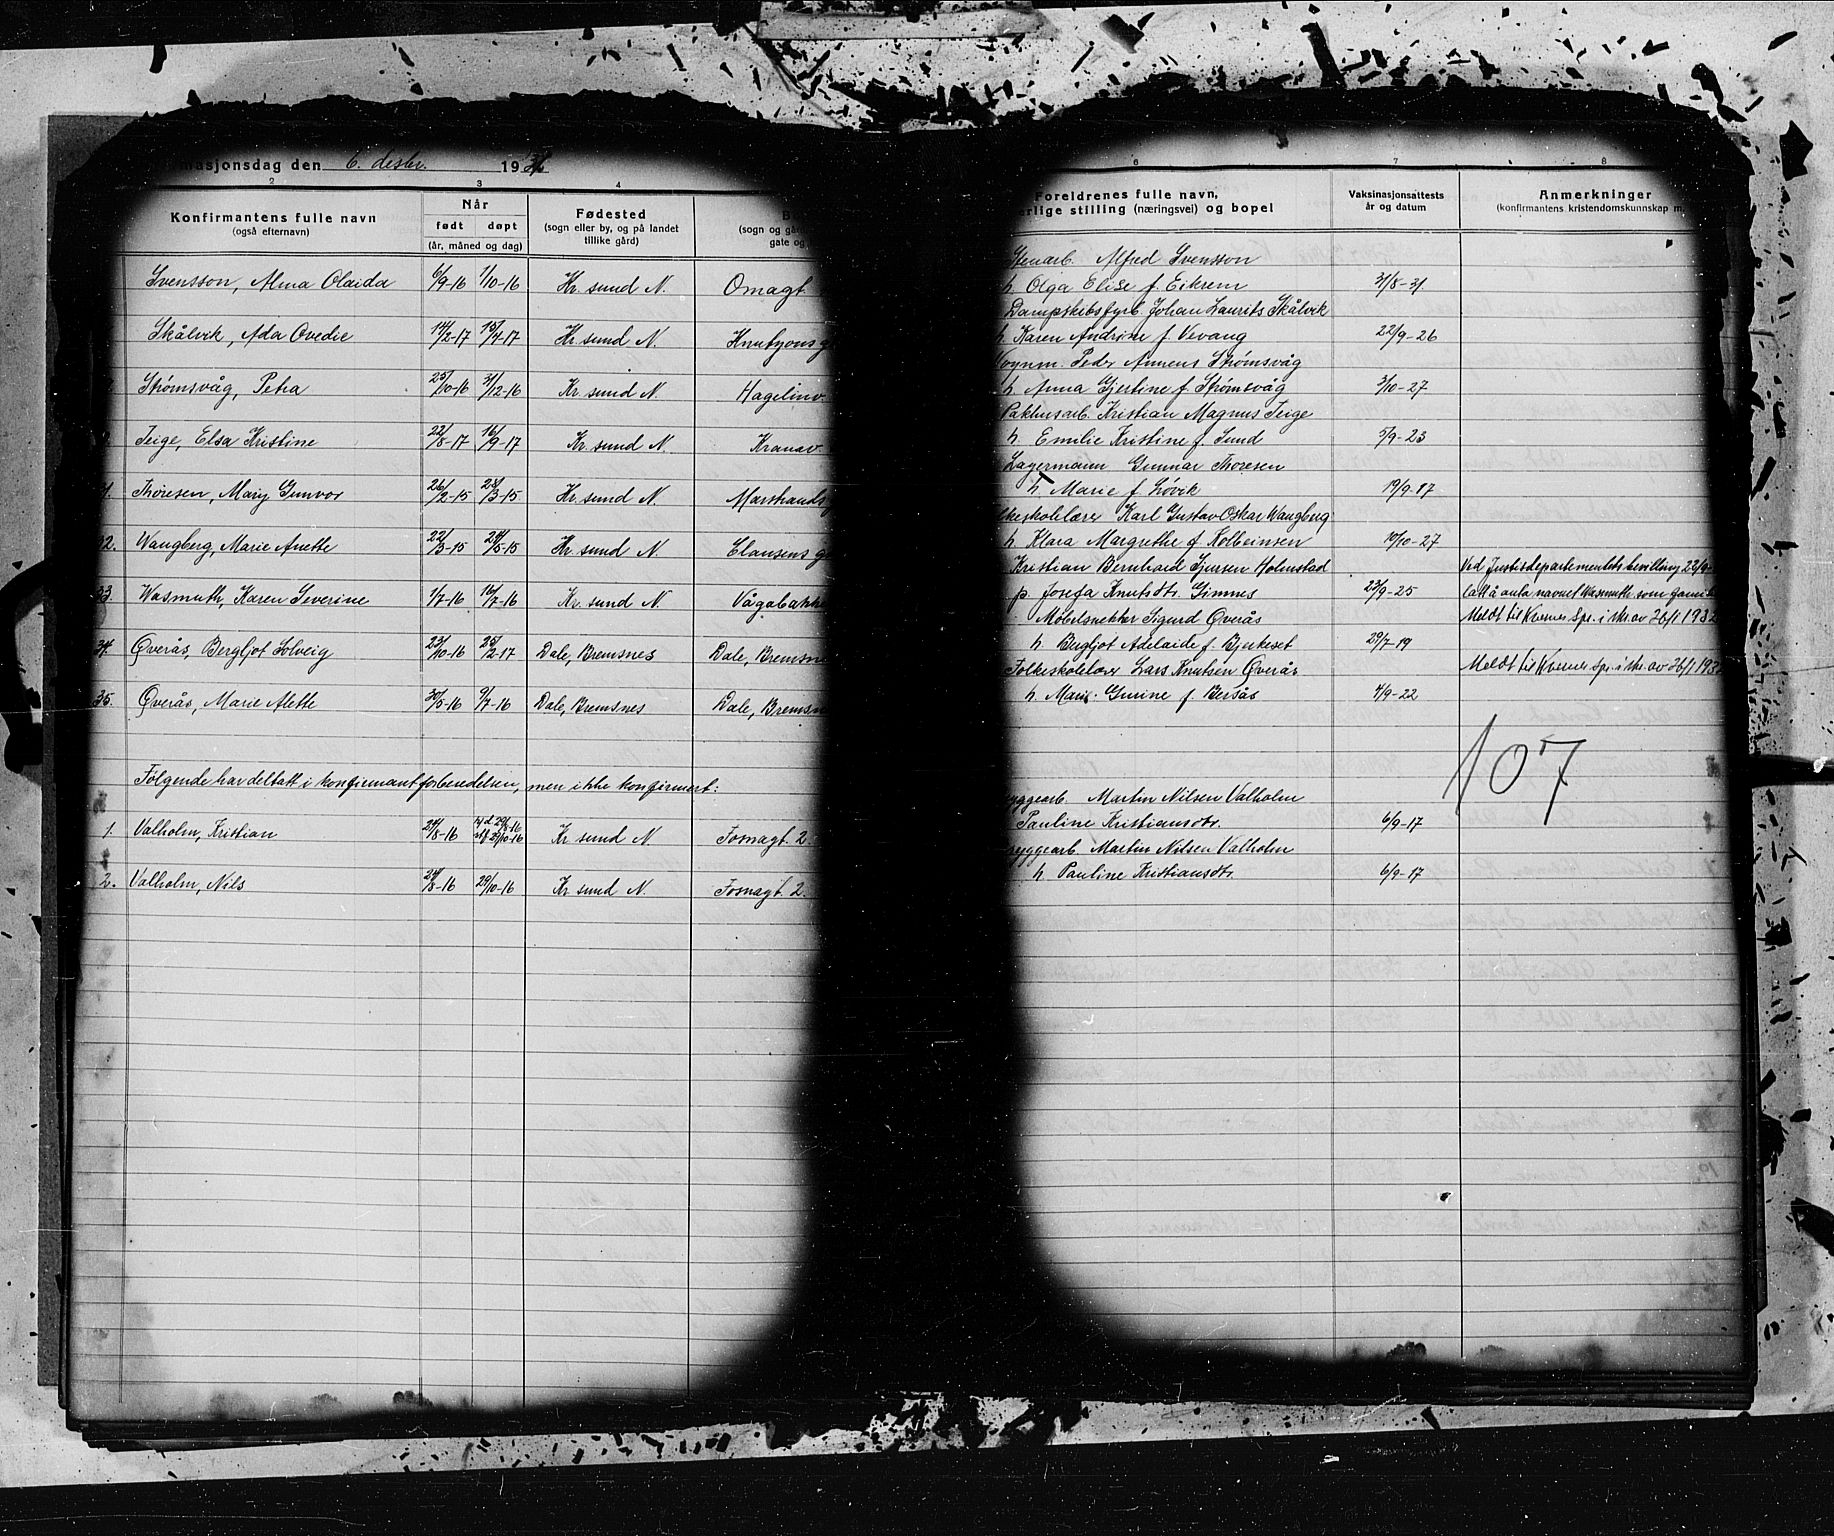 masjonsdag den 6. desbr. 1931
2 3 4
Konfirmantens fulle navn
(også efternavn)
Når
født døpt
(år, måned og dag)
Fødested
(sogn eller by, og på landet
tillike gård)
(sogn og går
gate og
Svensson, Alma Olaida 6/9-16 1/10-16 Kr. sund N. Omagt.
Skålvik, Ada Ovedie 14/2-17 15/4-17 Kr. sund N. Knutzons g
Strømsvåg, Petra 25/10-16 31/12-16 Kr. sund N. Hagelinv.
Teige, Elsa Kristine 22/8-17 16/9-17 Kr. sund N. Kranav.
Thoresen, Mary Gunvor 26/2-15 28/3-15 Kr. sund N. Marshands
32. Wangberg, Marie Anette 22/3-15 24/5-15 Kr. sund N. Clausens g
33. Wasmuth, Karen Severine 1/7-16 16/7-16 Kr. sund N. Vågabakk
34. Øverås, Bergljot Solveig 23/10-16 25/2-17 Dale, Bremsnes Dale, Bremsn
35. Øverås, Marie Alette 30/5-16 9/7-16 Dale, Bremsnes Dale, Bremsn
Følgende har deltatt i konfirmantforberedelsen, men ikke konfirmert:
1. Valholm, Kristian 24/8-16 Kr. sund N. Fosnagt. 2.
2. Valholm, Nils 24/8-16 29/10-16 Kr. sund N. Fosnagt. 2.
6 7 8
Foreldrenes fulle navn,
erlige stilling (næringsvei) og bopel
Vaksinasjonsattests
år og datum
Anmerkninger
(konfirmantens kristendomskunnskap m.
Stenarb. Alfred Svensson
h. Olga Elise f. Eikrem 31/8-31
Dampskibsfyrb. Johan Laurits Skålvik
h. Karen Andrine f. Vevang 22/9-26
Vognm. Peder Annens Strømsvåg
h. Anna Gjertine f. Strømsvåg 3/10-27
Pakhusarb. Kristian Magnus Teige
h. Emilie Kristine f. Sund 5/9-23
Lagermann Gunnar Thoresen
h. Marie f. Løvik 19/9-17
lkeskolelærer Karl Gustav Oskar Wangberg
h. Klara Margrethe f. Kolbeinsen 10/10-27
Kristian Bernhard Gjursen Holmstad Ved Justisdepartementets bevilling 22/9
p. Josefa Knutsdtr. Gimnes 23/9-25 latt å anta navnet Wasmuth som
Møbelsnekker Sigurd Øverås Meldt til Kvernes spr. i skr. av 26/1 1932
h. Bergljot Adelaide f. Bjerkeset 29/7-19
Folkeskolelærer Lars Knutsen Øverås Meldt til Kvernes spr. i skr. av 26/1 193
h. Marie Gurine f. Bersås 4/9-22
107
yggearb. Martin Nilsen Valholm
Pauline Kristiansdtr. 6/9-17
ryggearb. Martin Nilsen Valholm
h. Pauline Kristiansdtr. 6/9-17